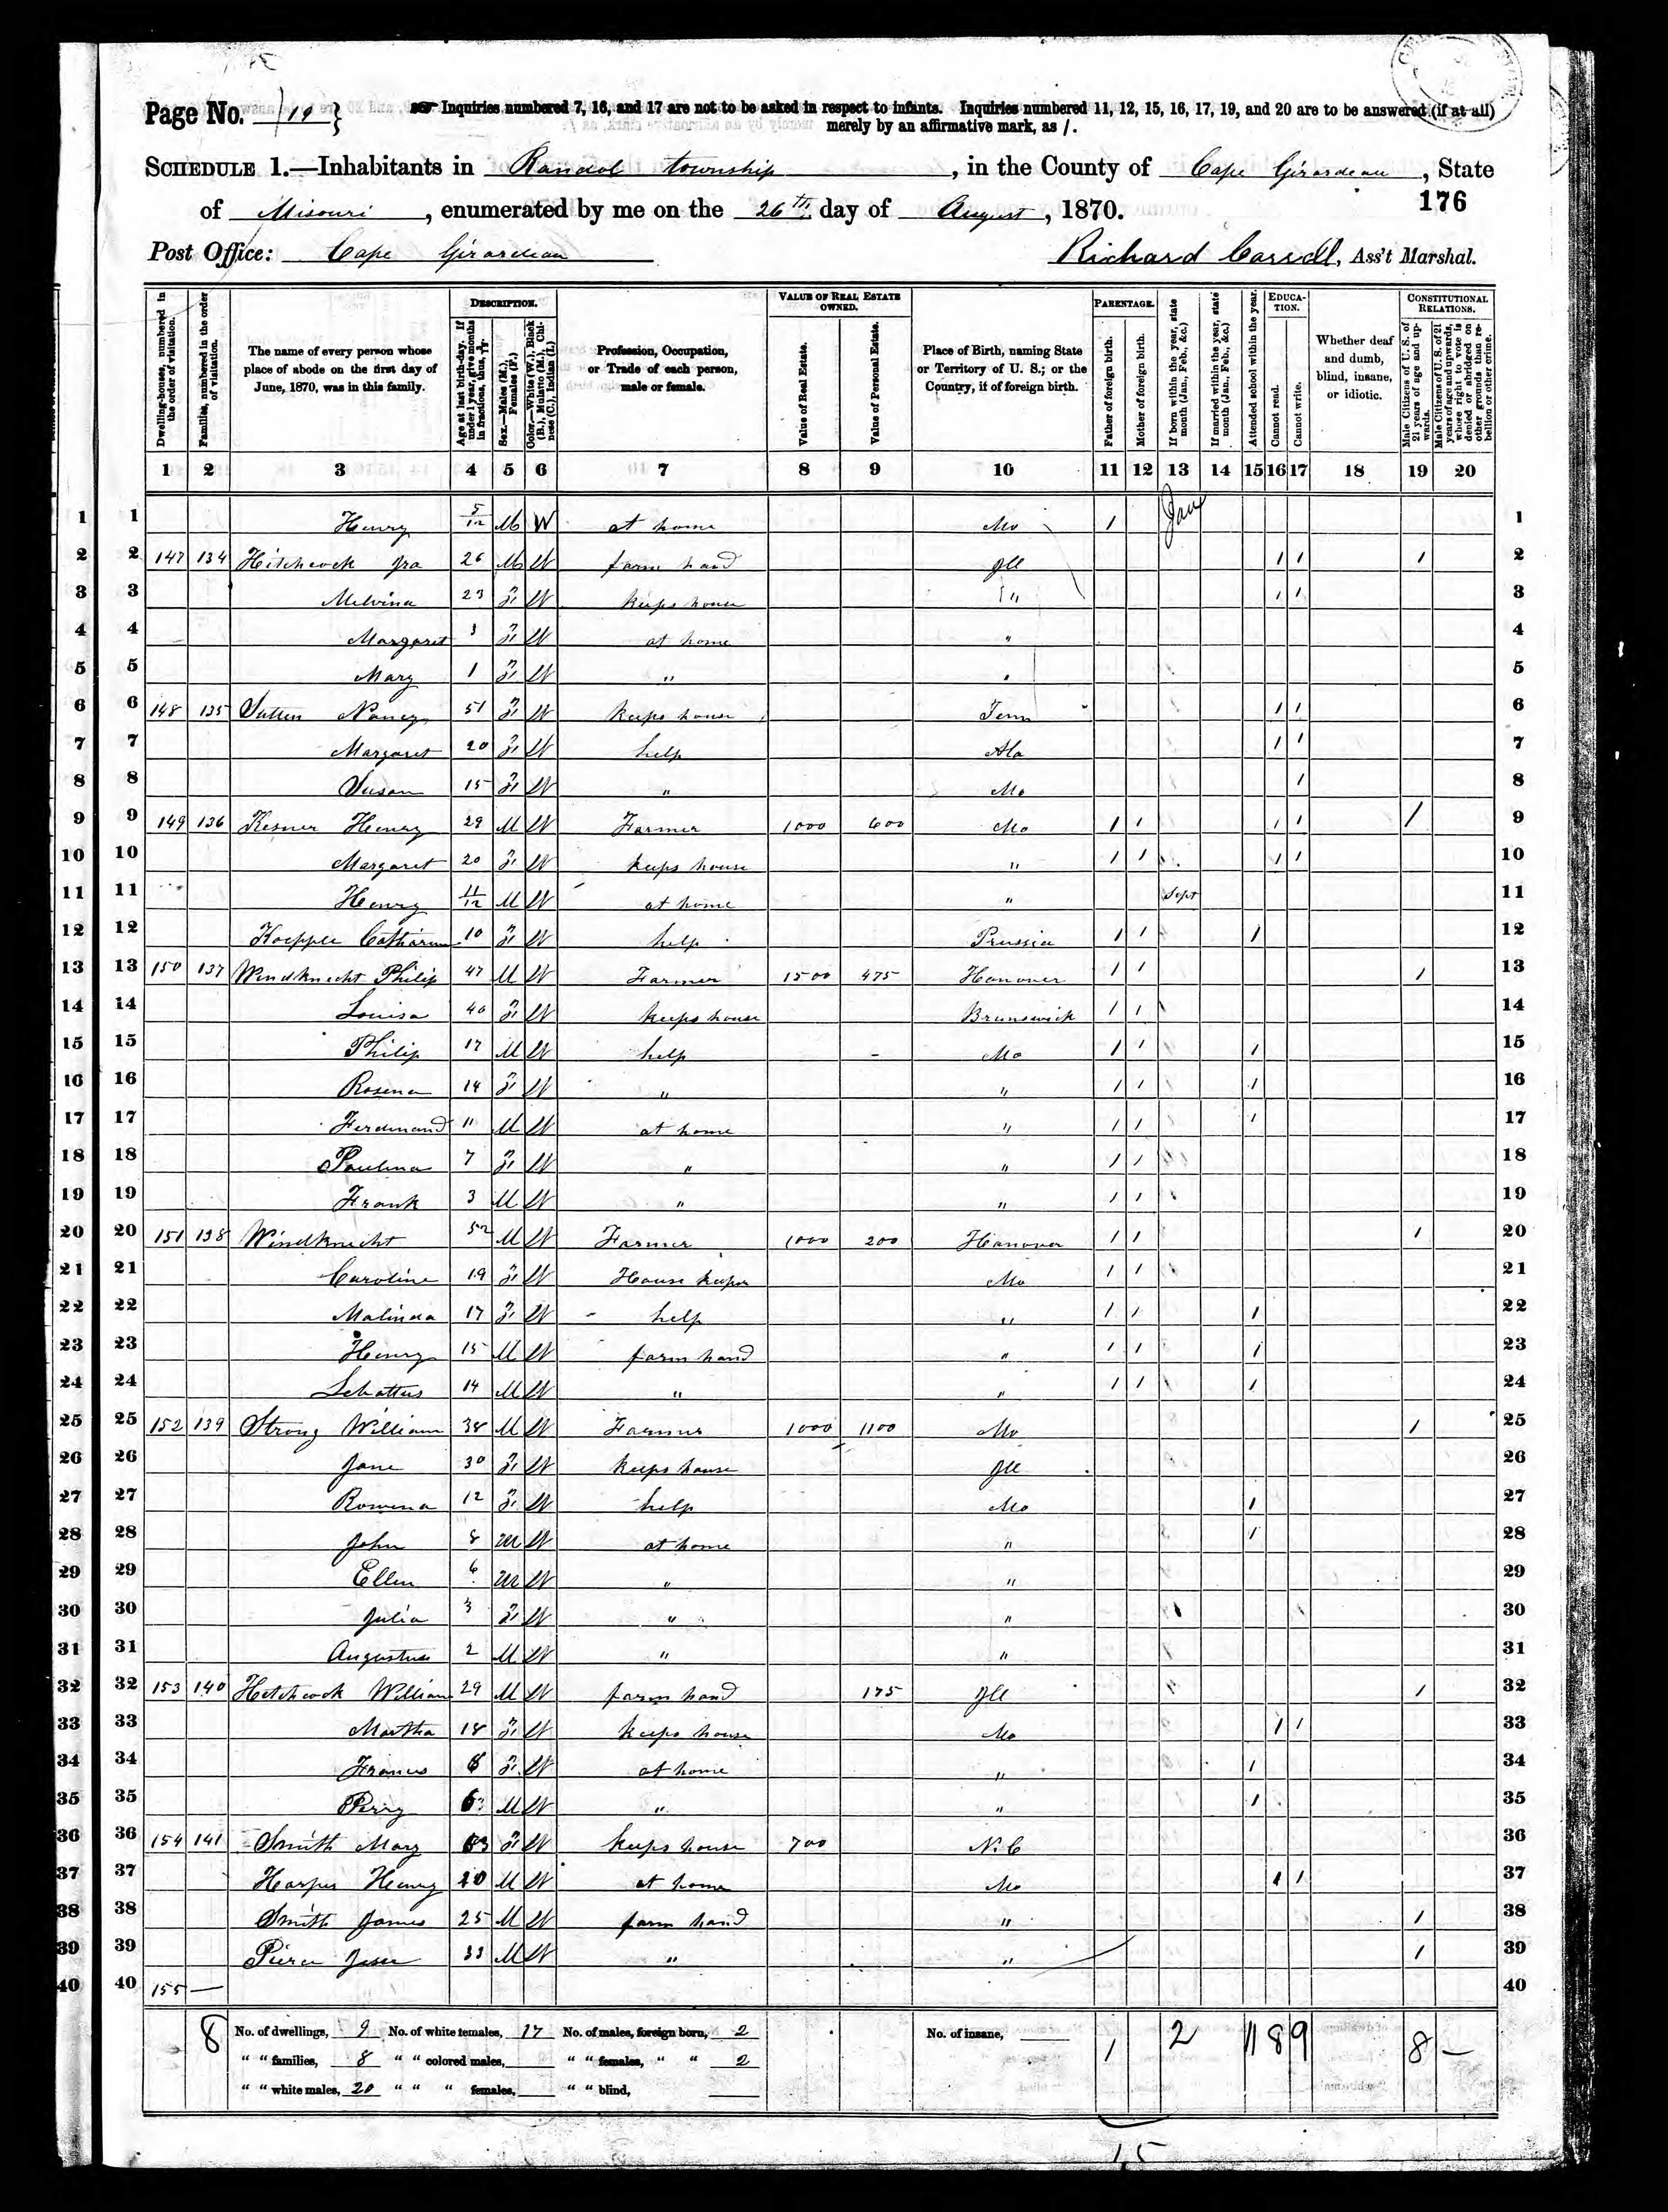 Page No. 19 } Inquiries numbered 7, 16, and 17 are not to be asked in respect to infants. Inquiries numbered 11, 12, 15, 16, 17, 19, and 20 are to be answered (if at all)
merely by an affirmative mark, as /.
SCHEDULE 1.—Inhabitants in Randol township, in the County of Cape Girardeau, State
of Misouri, enumerated by me on the 26th day of August, 1870. 176
Post Office: Cape Girardeau Richard, Ass't Marshal.
DESCRIPTION. VALUE OF REAL ESTATE OWNED. PARENTAGE. EDUCATION. CONSTITUTIONAL RELATIONS.
Dwelling-houses, numbered in the order of visitation.
Families, numbered in the order of visitation.
The name of every person whose place of abode on the first day of June, 1870, was in this family.
Age at last birth-day. If under 1 year, give months in fractions, thus, 3/12
Sex.—Males (M.), Females (F.)
Color.—White (W.), Black (B.), Mulatto (M.), Chinese (C.), Indian (I.)
Profession, Occupation, or Trade of each person, male or female.
Value of Real Estate.
Value of Personal Estate.
Place of Birth, naming State or Territory of U. S.; or the Country, if of foreign birth.
Father of foreign birth.
Mother of foreign birth.
If born within the year, state month (Jan., Feb., &c.)
If married within the year, state month (Jan., Feb., &c.)
Attended school within the year.
Cannot read.
Cannot write.
Whether deaf and dumb, blind, insane, or idiotic.
Male Citizens of U. S. of 21 years of age and upwards.
Male Citizens of U. S. of 21 years of age and upwards, whose right to vote is denied or abridged on other grounds than rebellion or other crime.
1 2 3 4 5 6 7 8 9 10 11 12 13 14 15 16 17 18 19 20
1 1 Henry 5/12 M W at home Mo / Jan 1
2 2 147 134 Hitchcock Ira 26 M W farm hand Ill / / / 2
3 3 Melvina 23 F W keeps house " / / 3
4 4 Margaret 3 F W at home " 4
5 5 Mary 1 F W " " 5
6 6 148 135 Nancy 51 F W keeps house Tenn / / 6
7 7 Margaret 20 F W help Ala / / 7
8 8 Susan 15 F W " Mo / 8
9 9 149 136 Kesner Henry 29 M W Farmer 1000 600 Mo / / / / / 9
10 10 Margaret 20 F W keeps house " / / / / 10
11 11 Henry 11/12 M W at home " Sept 11
12 12 Koepple Catharine 10 F W help Prussia / / / 12
13 13 150 137 Windknecht Philip 47 M W Farmer 1500 475 Hanover / / / 13
14 14 Louisa 40 F W keeps house Brunswick / / 14
15 15 Philip 17 M W help Mo / / / 15
16 16 Rosena 14 F W " " / / / 16
17 17 Ferdinand 11 M W at home " / / / 17
18 18 Paulina 7 F W " " / / 18
19 19 Frank 3 M W " " / / 19
20 20 151 138 Windknecht 52 M W Farmer 1000 200 Hanover / / / 20
21 21 Caroline 19 F W House keeper Mo / / 21
22 22 Malinda 17 F W help " / / / 22
23 23 Henry 15 M W farm hand " / / / 23
24 24 14 M W " " / / / 24
25 25 152 139 Strong William 38 M W Farmer 1000 1100 Mo / 25
26 26 Jane 30 F W keeps house Ill 26
27 27 Rowena 12 F W help Mo / 27
28 28 John 8 M W at home " / 28
29 29 Ellen 6 M W " " 29
30 30 Julia 3 F W " " 30
31 31 Augustus 2 M W " " 31
32 32 153 140 Hitchcock William 29 M W farm hand 175 Ill / 32
33 33 Martha 18 F W keeps house Mo / / 33
34 34 Frances 6 F W at home " / 34
35 35 Perry M W " " / 35
36 36 154 141 Smith Mary 63 F W keeps house 700 N. C 36
37 37 Harper Henry 20 M W at home Mo / / 37
38 38 Smith James 25 M W farm hand " / 38
39 39 Pierce Jesse 33 M W " " / 39
40 40 155 — 40
8 No. of dwellings, 9 No. of white females, 17 No. of males, foreign born, 2 No. of insane, 1 2 11 8 9 8 —
" " families, 8 " " colored males, " " females, " " 2
" " white males, 20 " " " females, " " blind,
15